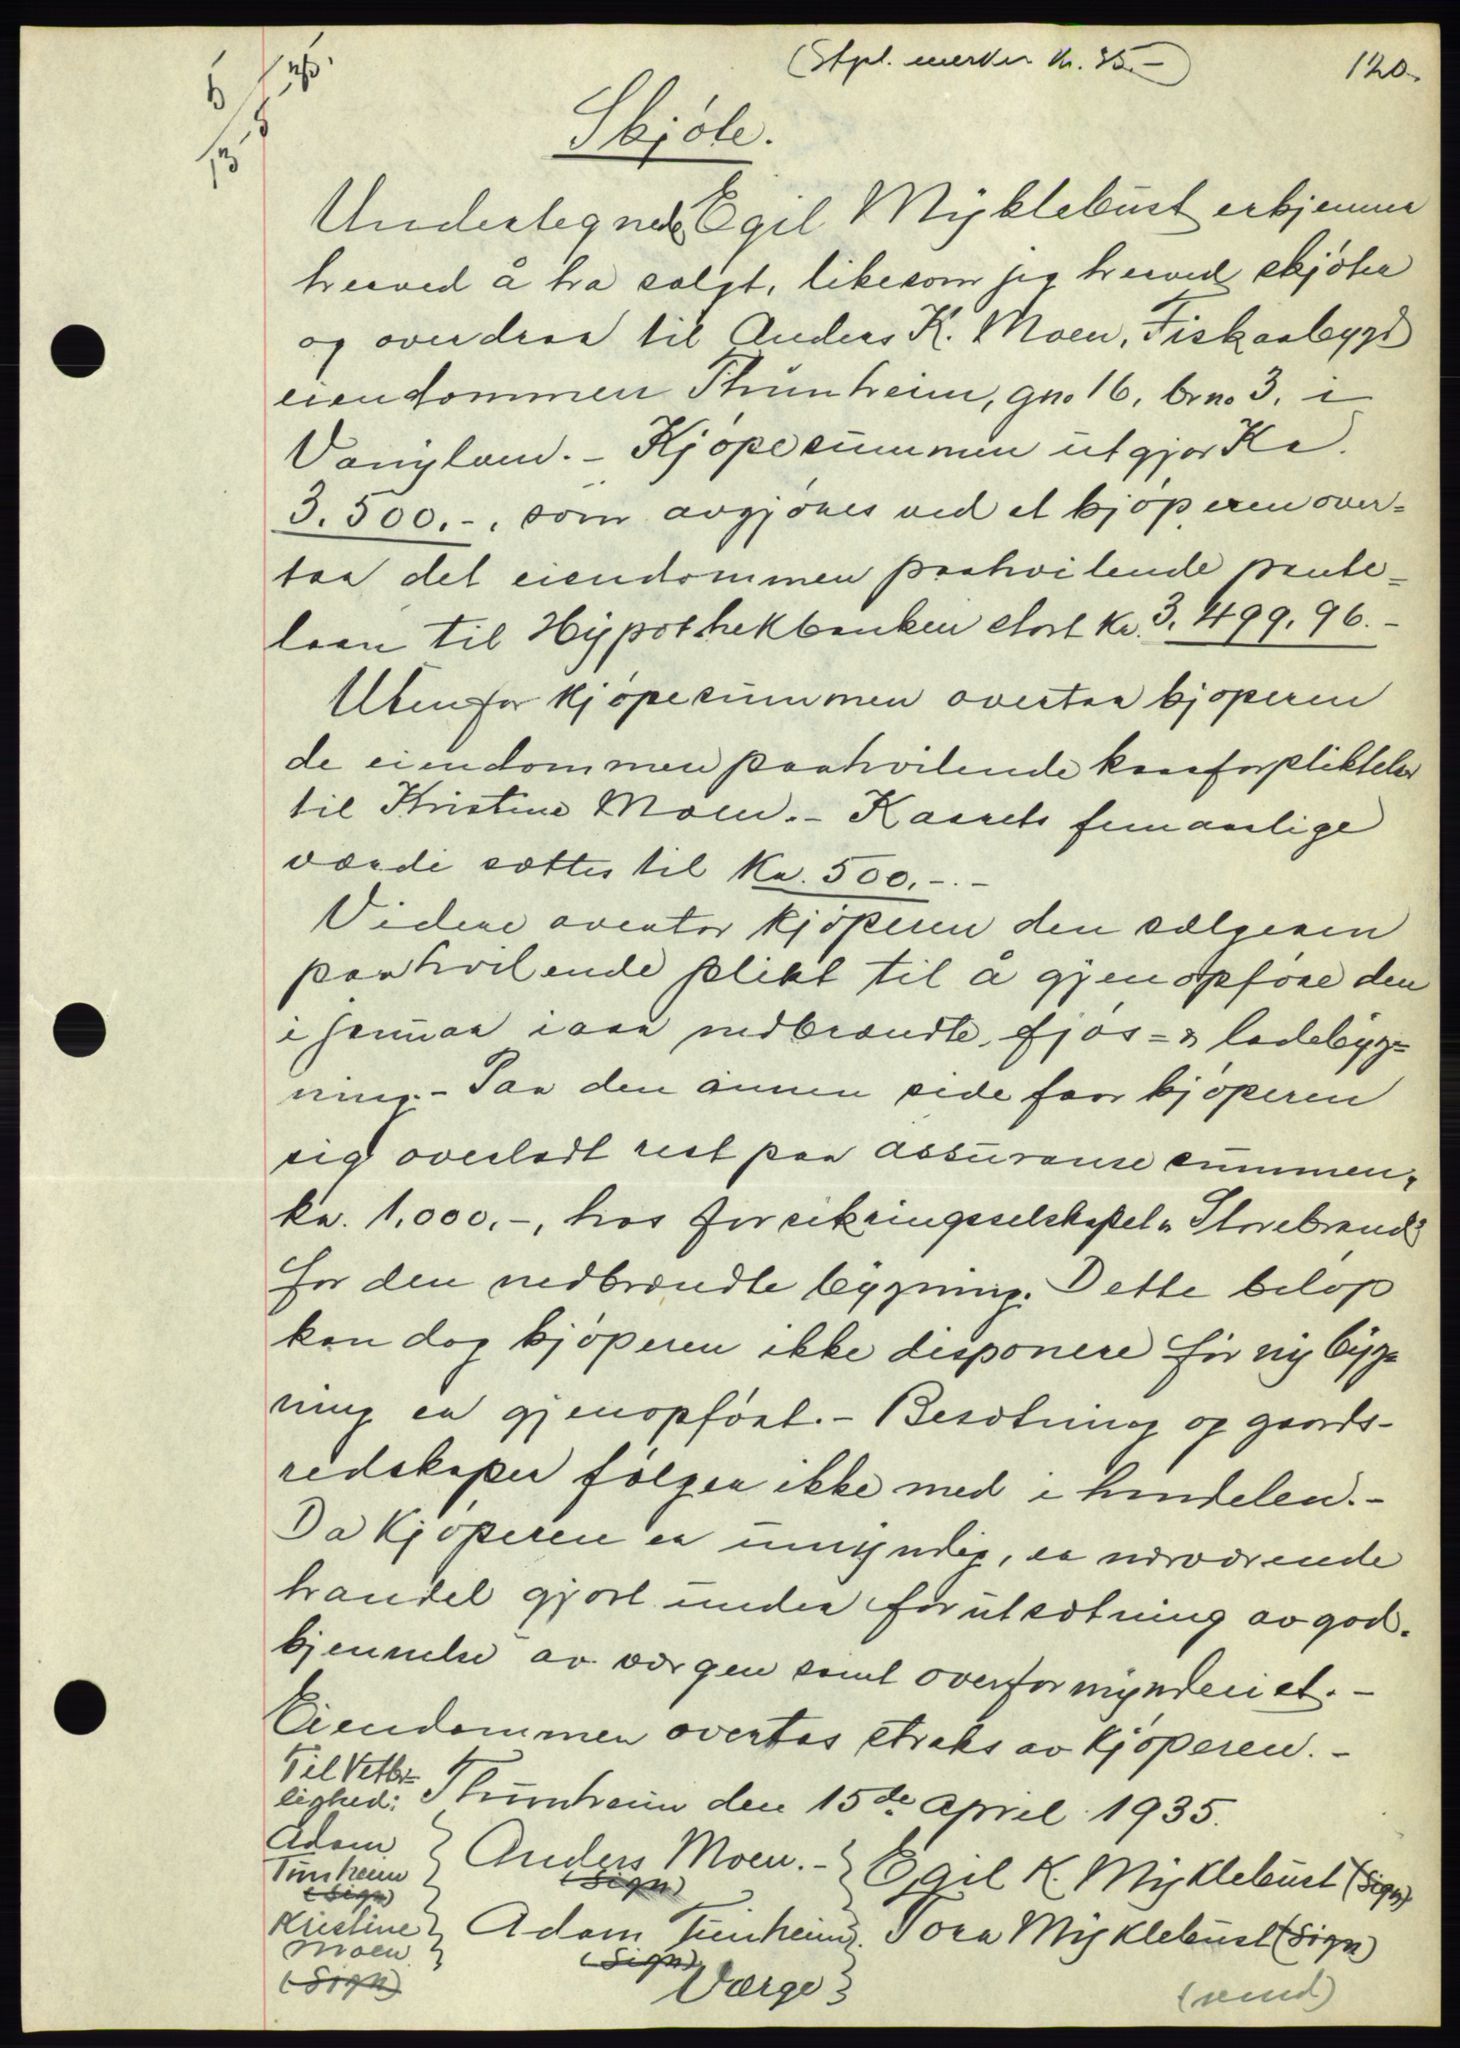 (Stpl. merker kr. 35.-)
120.
Skjöte.
Undertegnede Egil Myklebust erkjenner
herved å ha solgt, likesom jeg herved skjöter
og overdrar til Anders K. Moen, Fiskaabygd
eiendommen Thunheim, gno 16, brno 3, i
Vanylven. - Kjöpesummen utgjor Kr.
3.500.-, som avgjöres ved at kjöperen over=
tar det eiendommen paahvilende pante=
laan til Hypothekbanken stort kr. 3.499.96.-
Utenfor kjöpesummen overtar kjoperen
de eiendommen paahvilende kaarforpliktelser
til Kristine Moen. - Kaarets femaarlige
værdi sættes til kr. 500.-.-
Videre overtar kjöperen den sælgeren
paahvilende plikt til å gjenopföre den
i januar iaar nedbrændte fjös= & ladebyg=
ning. - Paa den annen side faar kjöperen
sig overladt rest paa assuransesummen,
kr. 1.000.-, hos forsikringsselskapet "Storebrand"
for den nedbrændte bygning. Dette belöp
kan dog kjöperen ikke disponere för ny byg=
ning er gjenopfört. - Besætning og gaards-
redskaper fölger ikke med i handelen. -
Da Kjöperen er umyndig, er nærværende
handel gjort under forutsætning av god-
kjennelse av værgen samt overformynderiet. -
Eiendommen overtas straks av Kjöperen. -
Til Vitter=
lighed: Thunheim den 15de April 1935.
Adam
Tunheim
(Sign)
Kristine
Moen
(Sign)
Anders Moen. -
(Sign)
Adam Tunheim.
(Sign)
Værge
Egil K. Myklebust (Sign)
Tora Myklebust (Sign)
(vend)